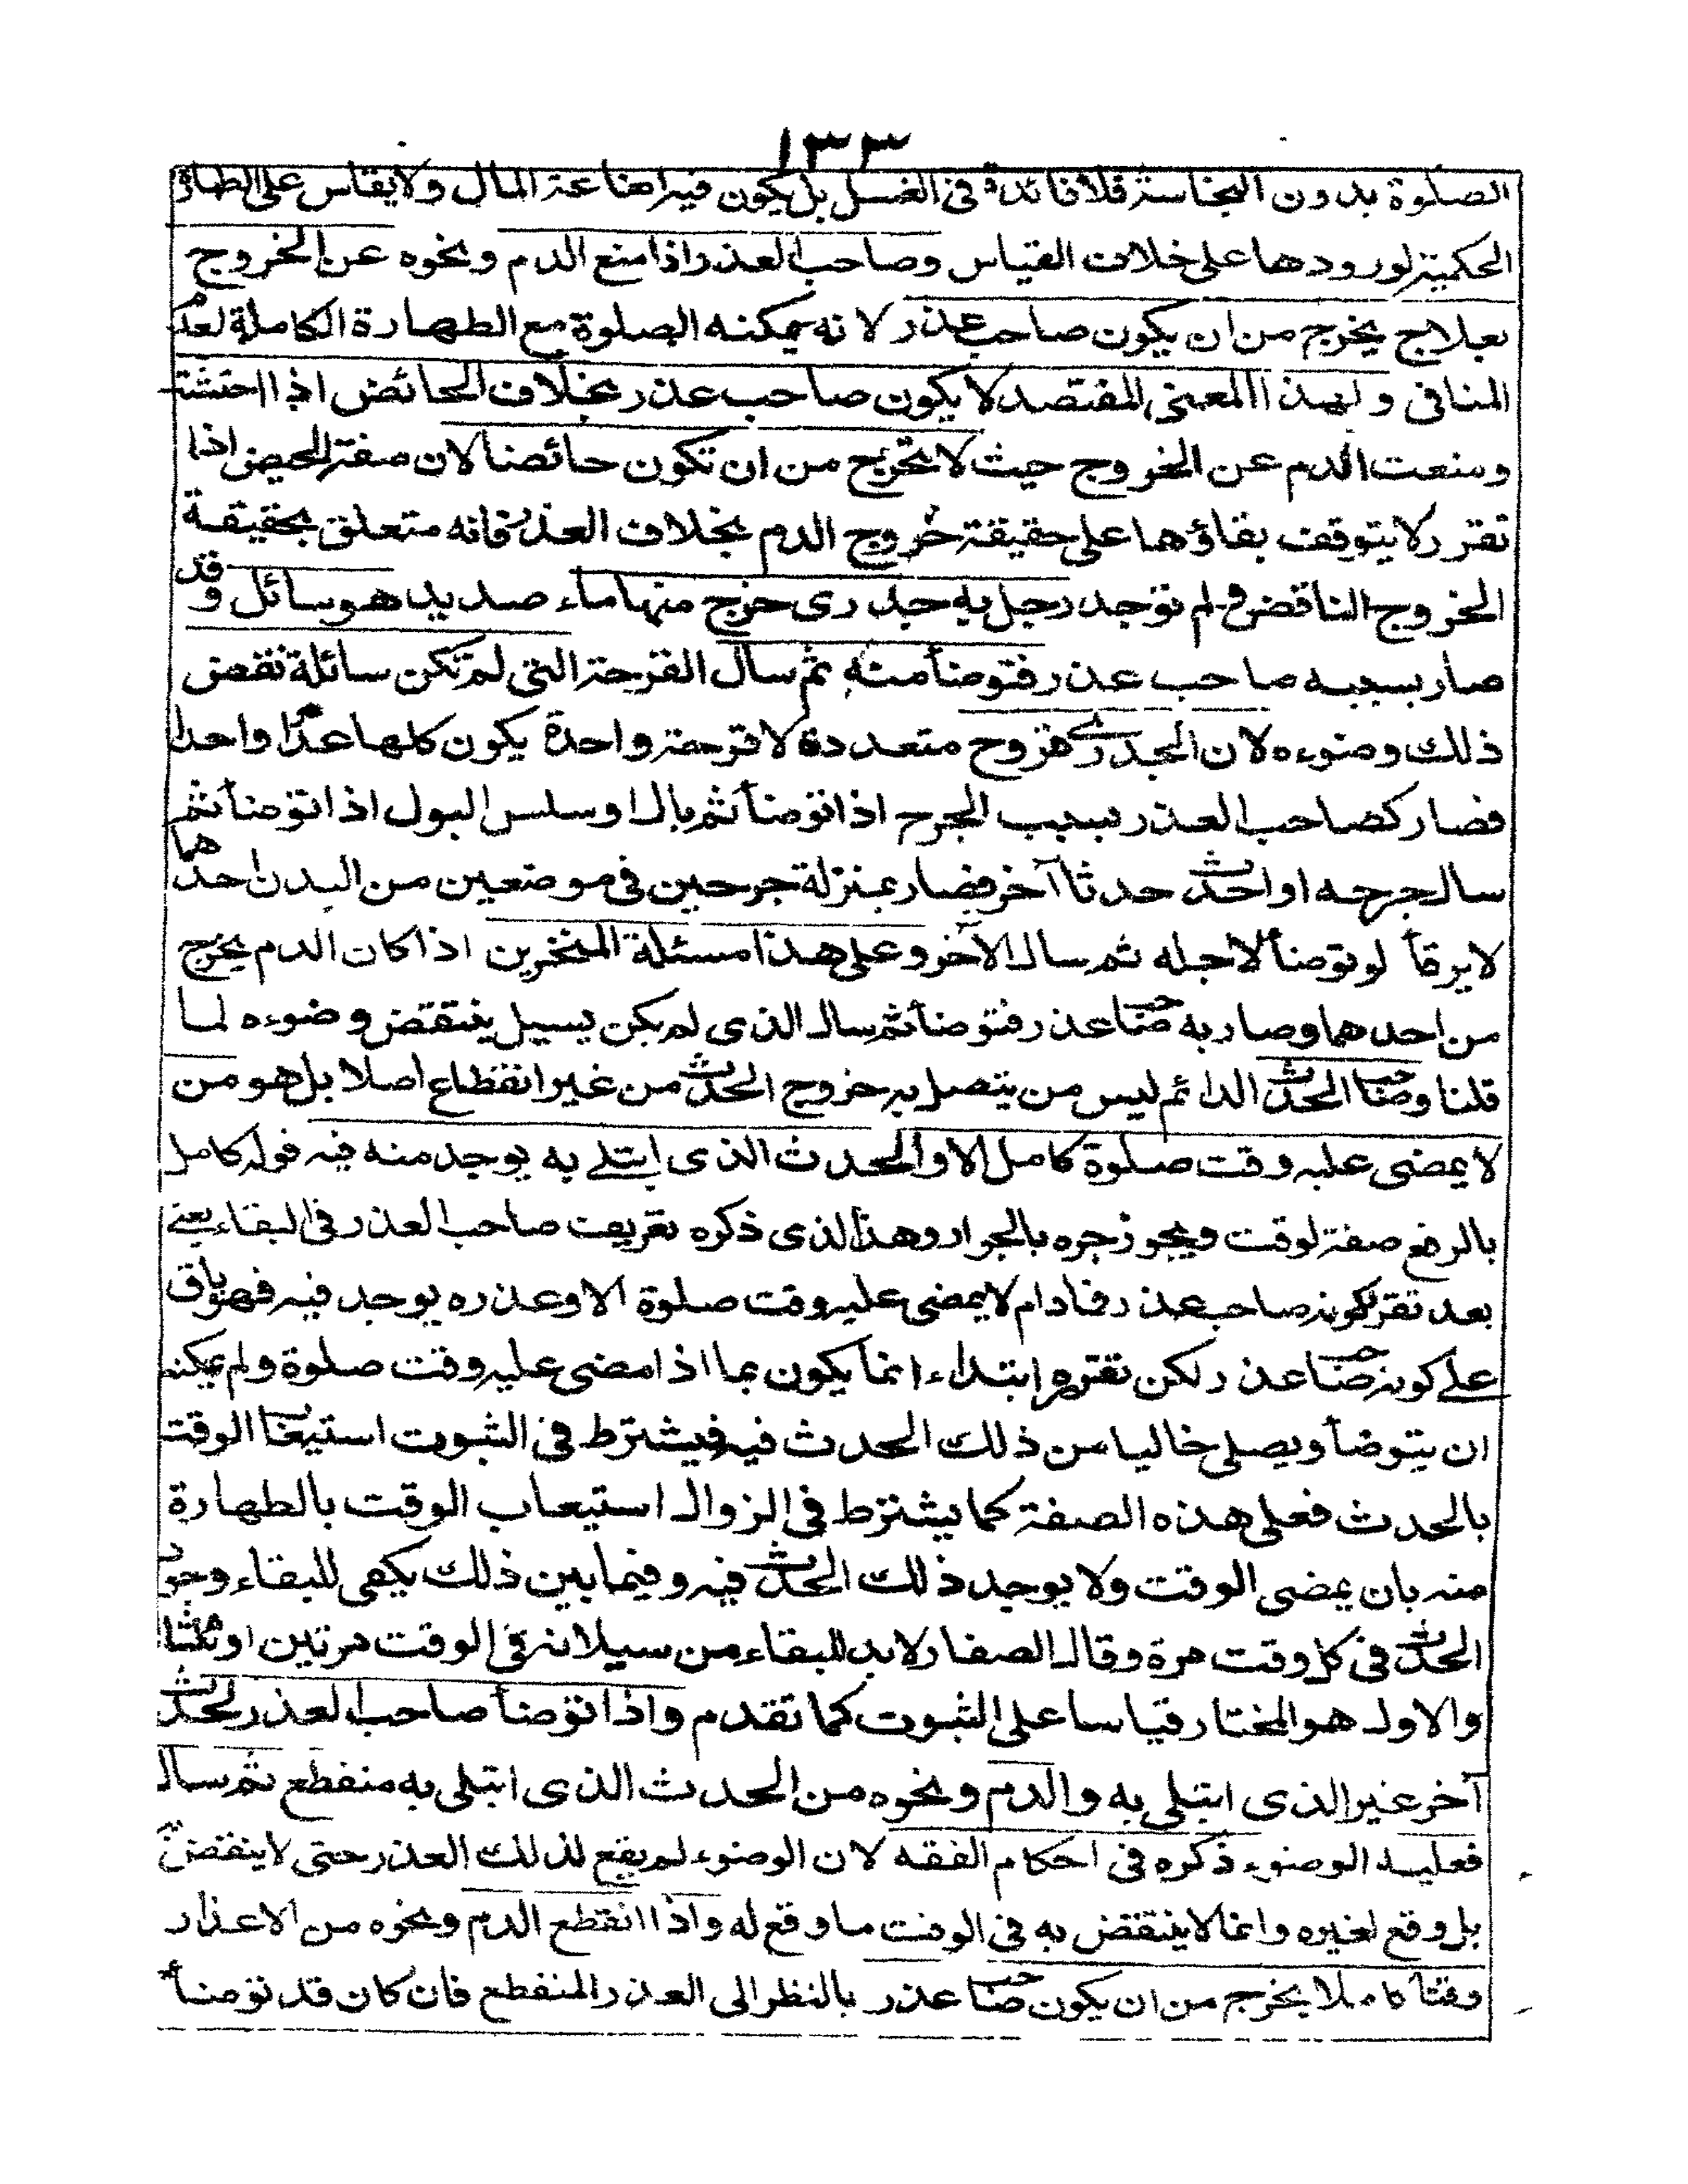 ١٣٣
الصلوة بدون النجاسة فلا فائدة فى الغسل بل يكون فيه اضاعة المال ولا يقاس على الطهارة
الحكمية لورودها على خلاف القياس وصاحب العذر اذا منع الدم ونحوه عن الخروج
بعلاج يخرج من ان يكون صاحب عذر لانه يمكنه الصلوة مع الطهارة الكاملة لعدم
المنافى ولهذا المعنى المفتصد لا يكون صاحب عذر بخلاف الحائض اذا احتشت
ومنعت الدم عن الخروج حيث لا تخرج من ان تكون حائضا لان صفة الحيض اذا
تقرر لا يتوقف بقاؤها على حقيقة خروج الدم بخلاف العذر فانه متعلق بحقيقة
الخروج الناقض ولم توجد رجل به جدرى خرج منها ماء صديد هو سائل وقد
صار بسببه صاحب عذر فتوضأ منه ثم سال القرحة التى لم تكن سائلة نقض
ذلك وضوءه لان الجدرى قروح متعددة لا قرحة واحدة يكون كلها عذرا واحدا
فصار كصاحب العذر بسبب الجرح اذا توضأ ثم بال او سلس البول اذا توضأ ثم
سال جرحه او احدث حدثا آخر فصار بمنزلة جرحين فى موضعين من البدن احدهما
لا يرقأ لو توضأ لاجله ثم سال الآخر وعلى هذا مسئلة المنخرين اذا كان الدم يخرج
من احدهما وصار به صاحب عذر فتوضأ ثم سال الذى لم يكن يسيل ينتقض وضوءه لما
قلنا وصاحب الحدث الدائم ليس من يتصل به خروج الحدث من غير انقطاع اصلا بل هو من
لا يمضى عليه وقت صلوة كامل الا والحدث الذى ابتلى به يوجد منه فيه قوله كامل
بالرفع صفة لوقت ويجوز جره بالجوار وهذا الذى ذكره تعريف صاحب العذر فى البقاء يعنے
بعد تقرر كونه صاحب عذر فمادام لا يمضى عليه وقت صلوة الا وعذره يوجد فيه فهو باق
على كونه صاحب عذر لكن تقرره ابتداء انما يكون بما اذا مضى عليه وقت صلوة ولم يمكنه
ان يتوضأ ويصلى خاليا من ذلك الحدث فيه فيشترط فى الثبوت استيعاب الوقت
بالحدث فعلى هذه الصفة كما يشترط فى الزوال استيعاب الوقت بالطهارة
منه بان يمضى الوقت ولا يوجد ذلك الحدث فيه وفيما بين ذلك يكفى للبقاء وجود
الحدث فى كل وقت مرة وقال الصفار لا بد للبقاء من سيلانه فى الوقت مرتين او ثلثا
والاول هو المختار قياسا على الثبوت كما تقدم واذا توضأ صاحب العذر لحدث
آخر غير الذى ابتلى به والدم ونحوه من الحدث الذى ابتلى به منقطع ثم سال
فعليه الوضوء ذكره فى احكام الفقه لان الوضوء لم يقع لذلك العذر حتى لا ينتقض به
بل وقع لغيره وانما لا ينتقض به فى الوقت ما وقع له واذا انقطع الدم ونحوه من الاعذار
وقتا كاملا يخرج من ان يكون صاحب عذر بالنظر الى العذر المنقطع فان كان قد توضأ